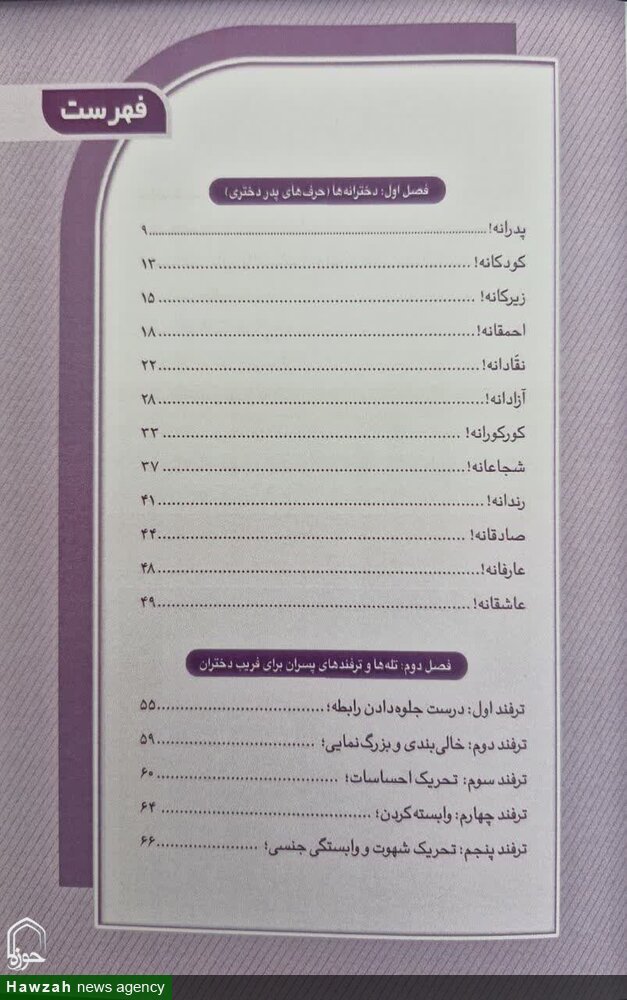 فهرست
فصل اول: دخترانه‌ها (حرف‌های پدر دختری)
پدرانه!........................................۹
کودکانه!........................................۱۳
زیرکانه!........................................۱۵
احمقانه!........................................۱۸
نقّادانه!........................................۲۲
آزادانه!........................................۲۸
کورکورانه!........................................۳۳
شجاعانه!........................................۳۷
رندانه!........................................۴۱
صادقانه!........................................۴۴
عارفانه!........................................۴۸
عاشقانه!........................................۴۹
فصل دوم: تله‌ها و ترفندهای پسران برای فریب دختران
ترفند اول: درست جلوه‌دادن رابطه؛........................................۵۵
ترفند دوم: خالی‌بندی و بزرگ‌نمایی؛........................................۵۹
ترفند سوم: تحریک احساسات؛........................................۶۰
ترفند چهارم: وابسته‌کردن؛........................................۶۴
ترفند پنجم: تحریک شهوت و وابستگی جنسی؛........................................۶۶
حوزه
Hawzah news agency